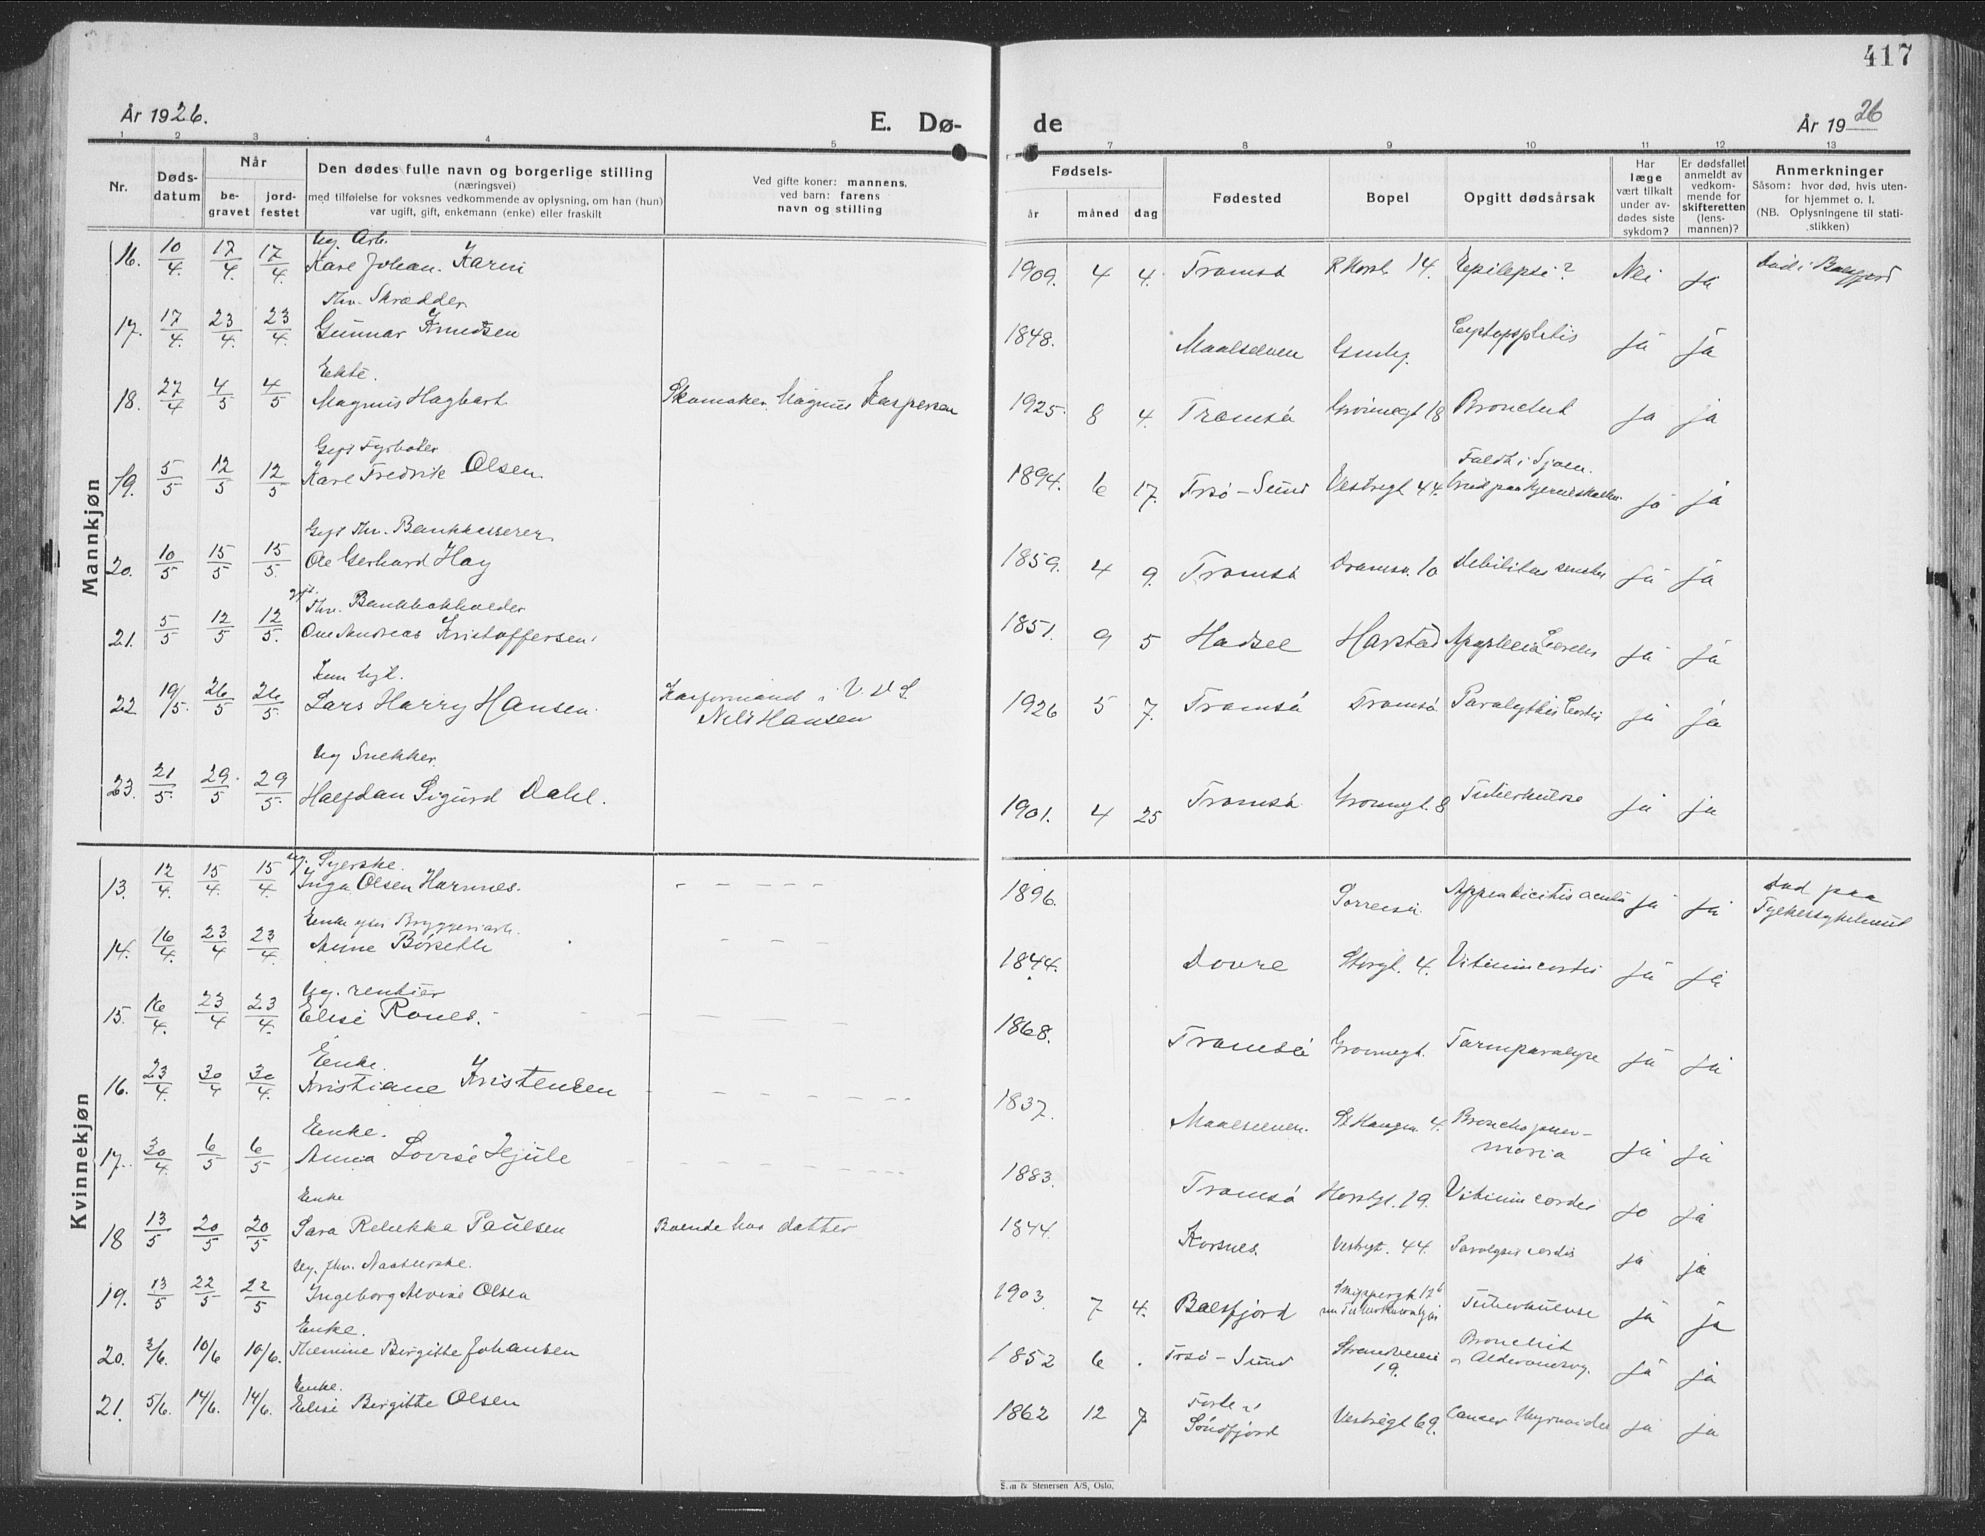 417
År 1926.
E. Dø-
de
År 1926
1 2 3 4 5
7 7 8 9 10 11 12 13
Nr.
Døds-
datum
Når
be-
gravet
jord-
festet
Den dødes fulle navn og borgerlige stilling
(næringsvei)
med tilføielse for voksnes vedkommende av oplysning, om han (hun)
var ugift, gift, enkemann (enke) eller fraskilt
Ved gifte koner: mannens,
ved barn: farens
navn og stilling
Fødsels-
år måned dag
Fødested
Bopel
Opgitt dødsårsak
Har
læge
vært tilkalt
under av-
dødes siste
sykdom?
Er dødsfallet
anmeldt av
vedkom-
mende for
skifteretten
(lens-
mannen)?
Anmerkninger
Såsom: hvor død, hvis uten-
for hjemmet o. l.
(NB. Oplysningene til stati-
stikken)
Mannkjøn
Ug. Arb.
16. 10/4 17/4 17/4 Karl Johan Karni 1909. 4 4. Tromsø 14. Epilepsi? Nei ja Død i Balsfjord
Fhv. Skrædder
17. 17/4. 23/4. 23/4. Gunnar Knudsen 1848. Maalselven ja ja
Ekte.
18. 27/4 4/5 4/5 Magnus Hagbart Skomaker Magnus Kaspersen 1925. 8 4. Tromsø Grønnegt 18 Bronchit ja ja
Gift Fyrbøter
19. 5/5 12/5 12/5 Karl Fredrik Olsen. 1894. 6 17. Trsø-Sund Vestregt 44. Faldt i Sjøen. ja ja
Gift Fhv. Bankkasserer.
20. 10/5 15/5 15/5. Ole Gerhard Hay 1859. 4 9. Tromsø Dramsv. 10 Debilitas senilis ja ja
gift. Fhv. Bankbokholder
21. 5/5 12/5 12/5. Ove Andreas Kristoffersen. 1851. 9 5 Hadsel Harstad Apoplexia Cerebri ja ja
22 19/5. 26/5 26/5 Lars Harry Hansen. i V. D. S.
Nils Hansen
1926 5 7. Tromsø Tromsø Paralythis Cordis ja ja
Ug Snekker.
23. 21/5. 29/5 29/5. Halfdan Sigurd Dahl. 1901. 4 25 Tromsø Grønnegt. 8 Tuberkulose ja ja
Kvinnekjøn
ug. Syerske.
13. 12/4. 15/4. 15/4 Inga Olsen Hamnes. 1896. Sørreisa Appendicitis acuta ja ja Død paa
Fylkessykehuset
Enke efter Bryggeriarb.
14. 16/4. 23/4 23/4. Anne Børseth 1844. Dovre Storgt. 4. Vitium cordis ja ja
Ug. rentier
15. 16/4. 23/4 23/4. Elise Ranes. 1868. Tromsø Grønnegt. Tarmparalyse ja ja
Enke.
16. 23/4 30/4 30/4. Kristiane Kristensen 1837. Maalselven. 4. Bronchopneu-
monia ja ja
Enke.
17. 30/4 6/5 6/5 Anna Lovise Hjule 1883. Tromsø 19. Vitium cordis ja ja
Enke
18 13/5 20/5 20/5 Sara Rebekka Paulsen Boende hos datter 1844. Korsnes. Vestregt. 44. Paralysis cordis ja ja
Ug. fhv.
19. 13/5 22/5 22/5 Ingeborg Alvise Olsen 1903. 7 4. Balsfjord Skippergt 12 b Tuberkulose ja ja
Enke.
20. 3/6. 10/6 10/6. Birgitte Johansen 1852 6 . Trsø-Sund Strandveien
19.
Bronchit
ja ja
Enke.
21. 5/6. 14/6. 14/6. Elise Birgitte Olsen 1862 12 7 Førde i
Søndfjord
Vestregt 69. Cancer ja ja
& Stenersen A/S, Oslo.